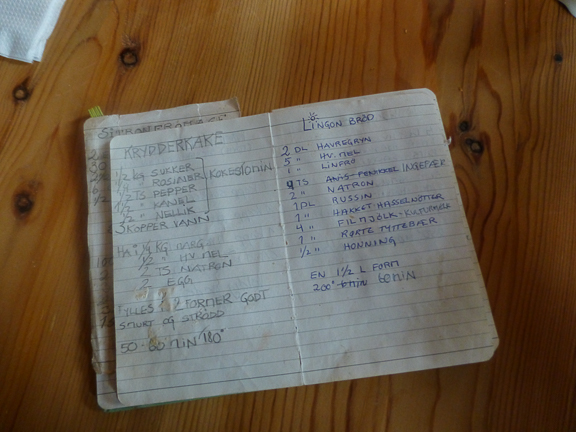 KRYDDERKAKE
1/2 kg SUKKER
ROSINER
1/2 TS PEPPER
1/2 " KANEL
1/2 " NELLIK
KOKES 10 MIN
3 KOPPER VANN
HA I 1/4 KG MARG
1/2 " HV MEL
2 TS NATRON
2 EGG
FYLLES I 2 FORMER GODT
SMURT OG STRØDD
50-60 MIN 180°
LINGON BRÖD
2 DL HAVREGRYN
5 " HV. MEL
1 " LINFRØ
4 TS INGEFÆR
2 " NATRON
1 DL RUSSIN
1 " HAKKET HASSELNØTTER
4 " FILMJÖLK - KULTURMELK
1 " RØRTE TYTEBÆR
1/2 " HONNING
EN 1 1/2 L FORM
200° 60 MIN